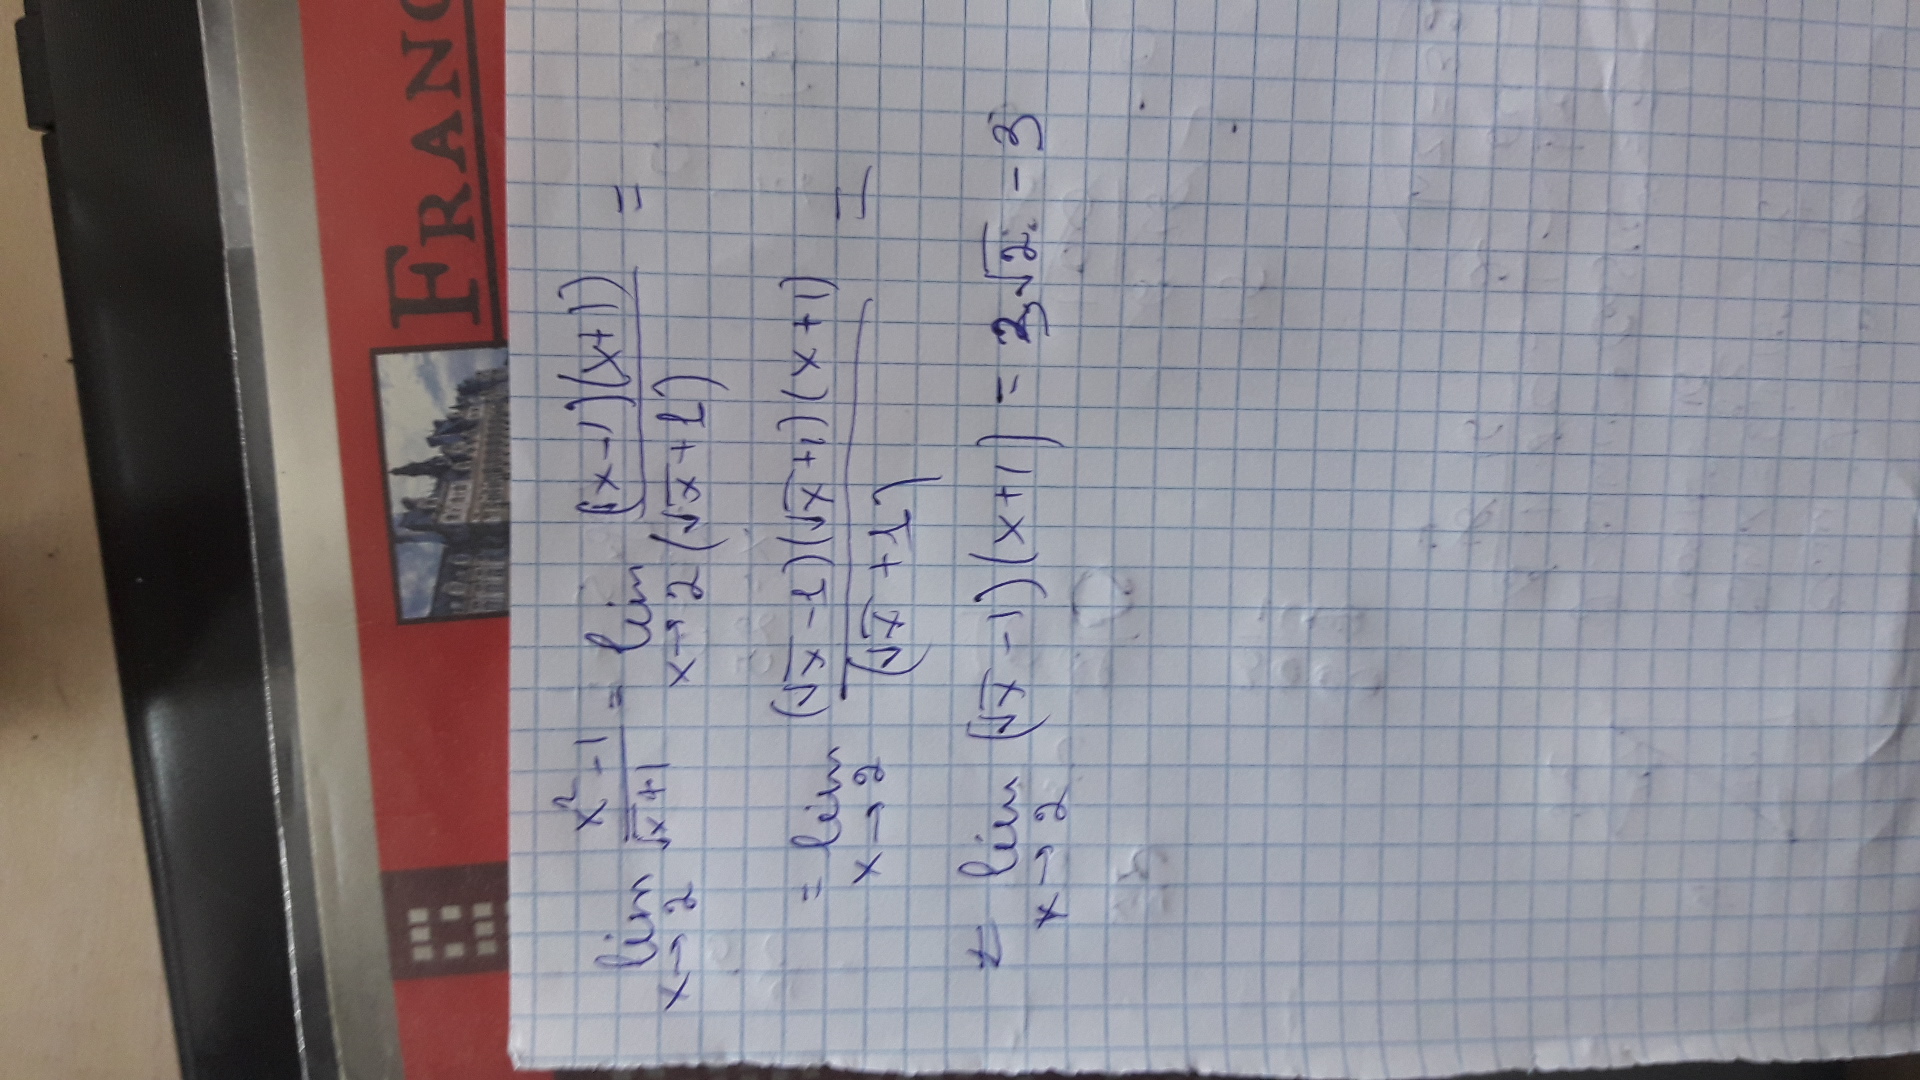 FRANC
lim x→2 x²-1/√x+1 = lim x→2 (x-1)(x+1)/(√x+1) =
= lim x→2 (√x-1)(√x+1)(x+1)/(√x+1) =
= lim x→2 (√x-1)(x+1) = 3√2-3